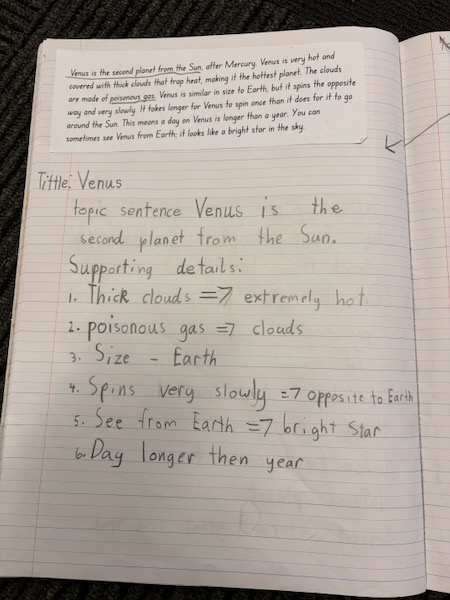 Venus is the second planet from the Sun, after Mercury. Venus is very hot and
covered with thick clouds that trap heat, making it the hottest planet. The clouds
are made of poisonous gas. Venus is similar in size to Earth, but it spins the opposite
way and very slowly. It takes longer for Venus to spin once than it does for it to go
around the Sun. This means a day on Venus is longer than a year. You can
sometimes see Venus from Earth; it looks like a bright star in the sky.
Tittle: Venus
topic sentence Venus is the
second planet from the Sun.
Supporting details:
1. Thick clouds => extremely hot
2. poisonous gas => clouds
3. Size - Earth
4. Spins very slowly => opposite to Earth
5. See from Earth => bright Star
6. Day longer then year